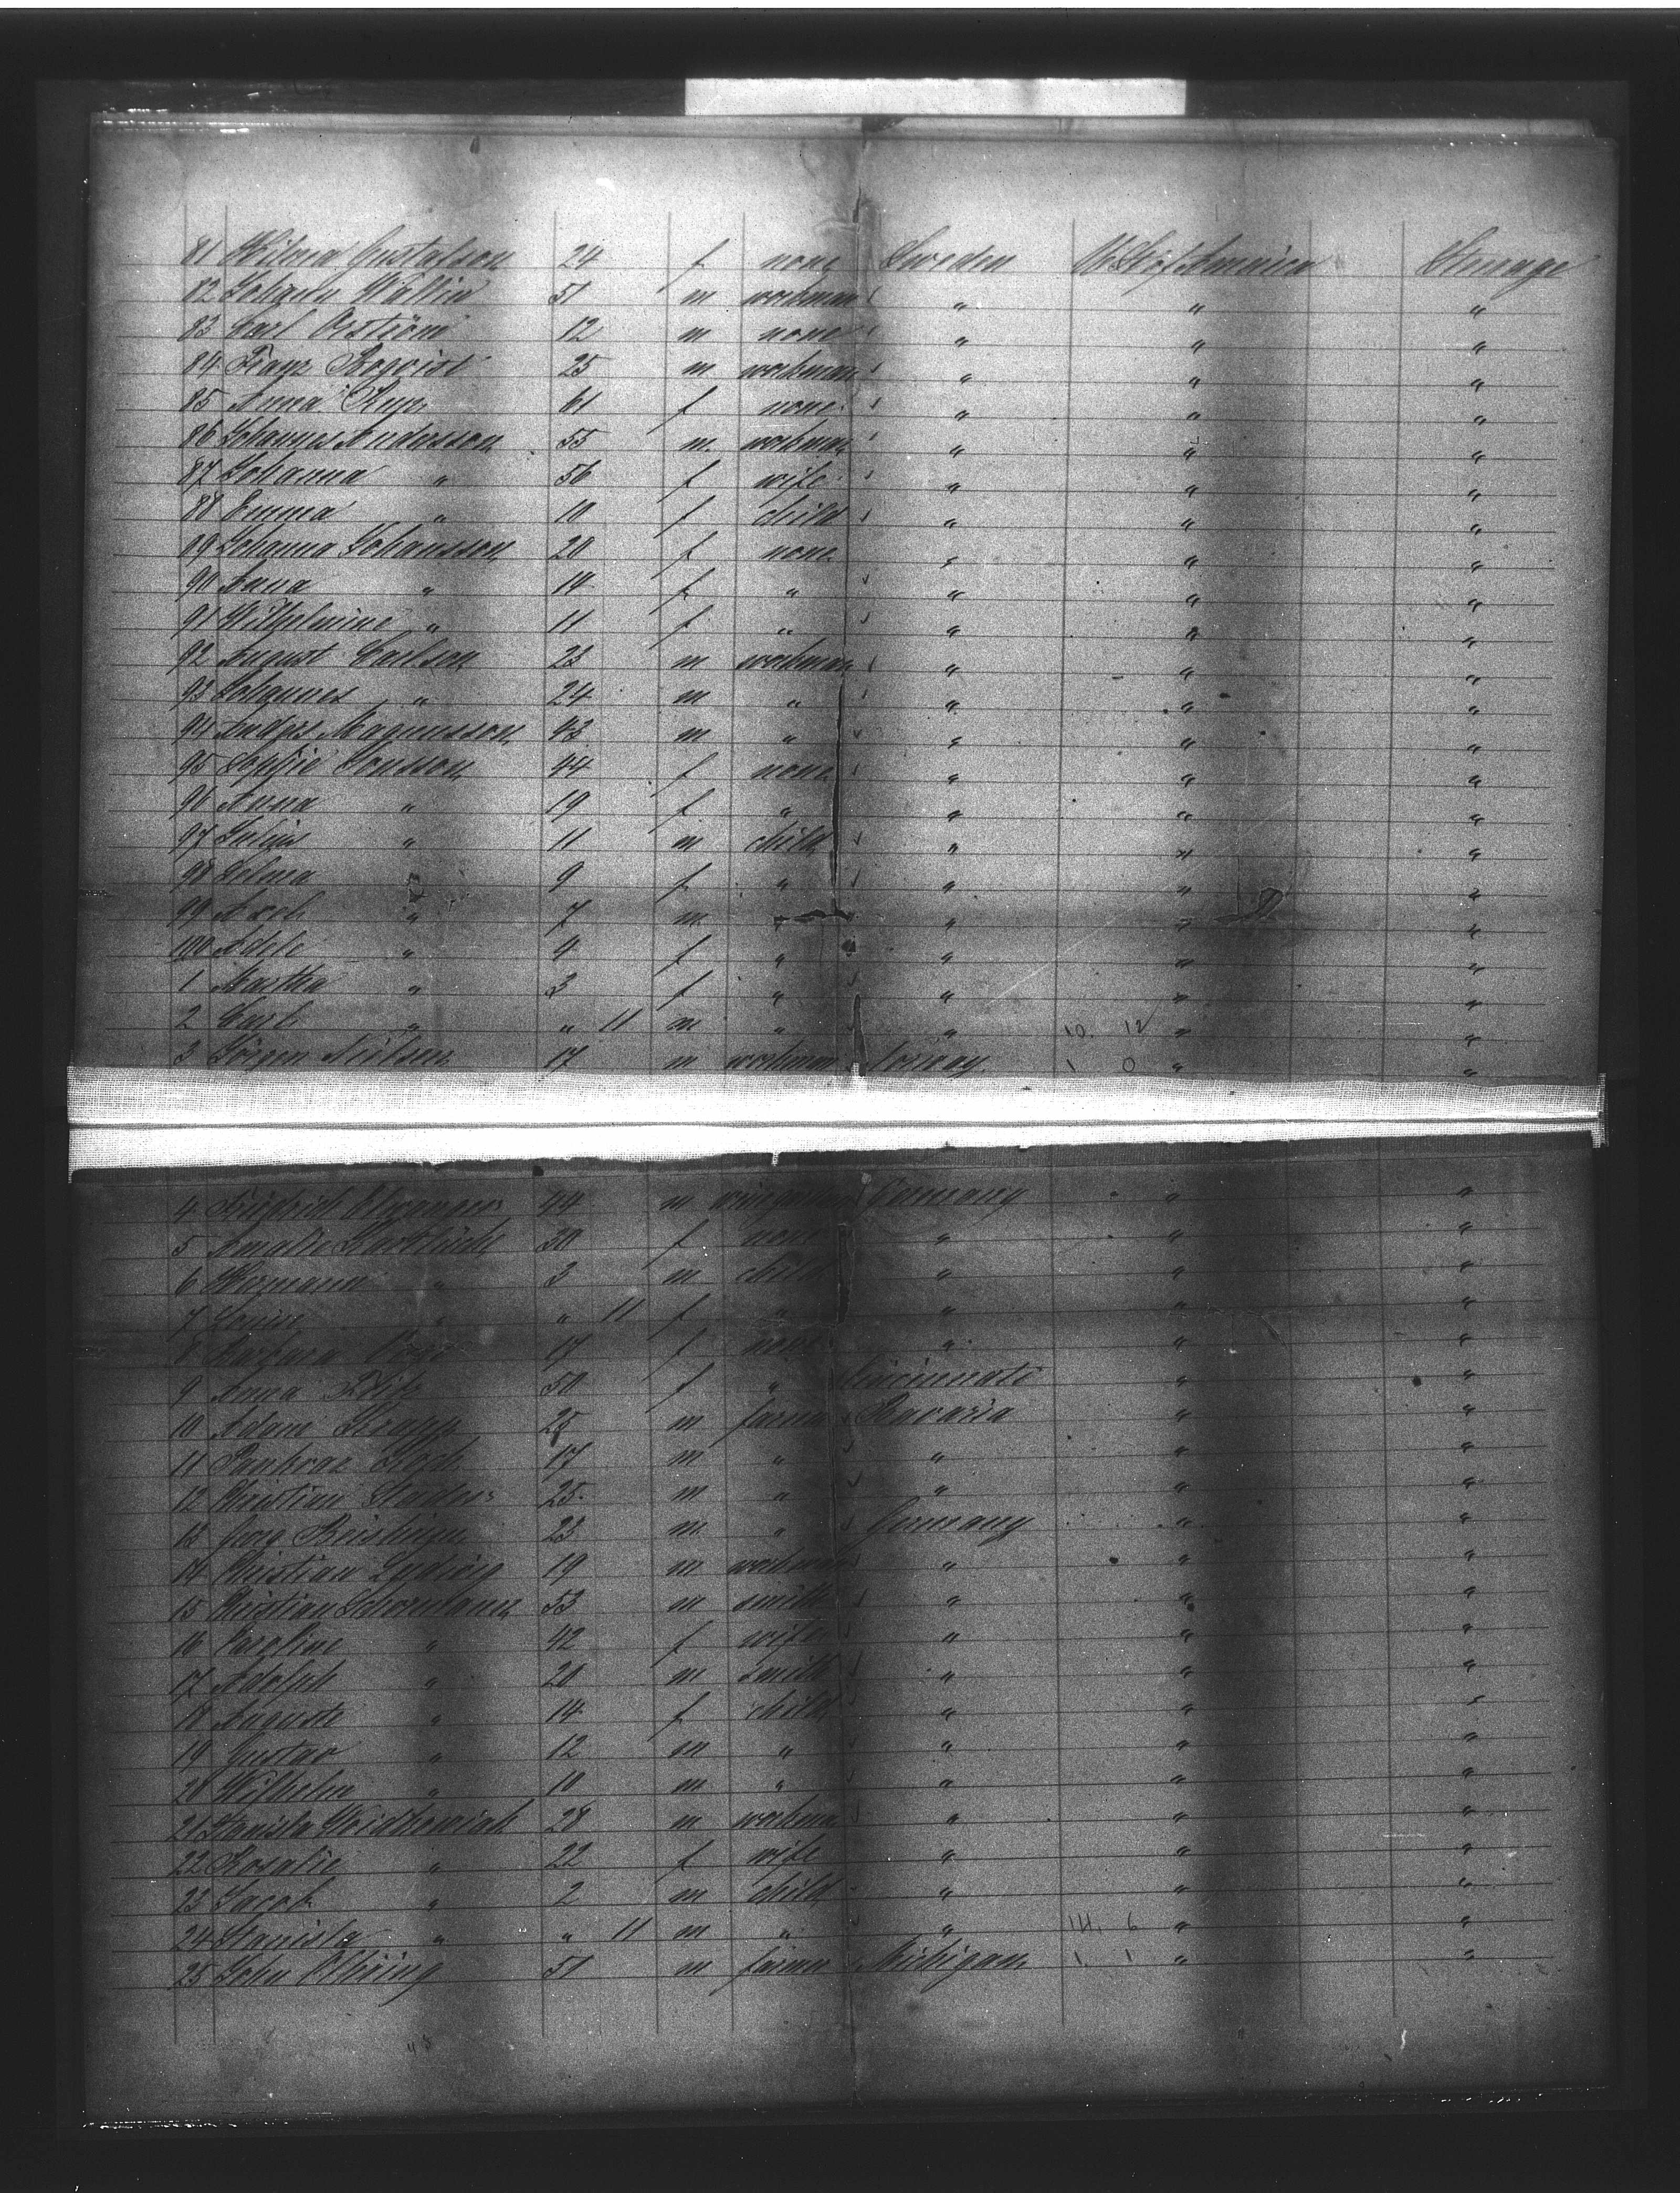 81 Hilma Gustafsson 24 f none Sweden U.St. of America Steerage
82 Johann Wallin 51 m workman " " "
83 Carl 12 m none " " "
84 Franz 25 m workman " " "
85 Anna 61 f none " " "
86 Johannes Andersson 55 m. workman " " "
87 Johanna " 56 f wife " " "
88 Emma " 10 f child " " "
89 Johanna Johansson 20 f none " " "
90 Anna " 14 f " " " "
91 Wilhelmine " 11 f " " " "
92 August Carlson 23 m workman " " "
93 Johannes " 24 m " " " "
94 Anders Magnusson 43 m " " " "
95 Sophie Jonsson 44 f none " " "
96 Anna " 19 f " " " "
97 Julius " 11 m child " " "
98 Selma " 9 f " " " "
99 Axel " 7 m " " " "
100 Adele " 4 f " " " "
1 Martha " 3 f " " " "
2 Carl " " 11 m " " 10. 12 " "
3 Jörgen Nielsen 17 m workman Norway 1 0 " "
4 Friedrich 44 m Germany " "
5 Amalie 30 f none " " "
6 Hermann " 3 m child " " "
7 Louise " " 11 f " " " "
8 Barbara 17 f none " " "
9 Anna 50 f " Cincinnati " "
10 Adam 25 m farmer Bavaria " "
11 Pankraz Koch 17 m " " " "
12 Christian 25 m " " " "
13 Georg 23 m " Germany " "
14 Christian Ludwig 19 m workman " " "
15 Christian 53 m smith " " "
16 Caroline " 42 f wife " " "
17 Adolph " 20 m smith " " "
18 Auguste " 14 f child " " "
19 Gustav " 12 m " " " "
20 Wilhelm " 10 m " " " "
21 Stanisla 28 m workman " " "
22 Rosalie " 22 f wife " " "
23 Jacob " 2 m child " " "
24 Stanisla " " 11 m " " 14. 6 " "
25 John 51 m farmer Michigan 1. 1 " "